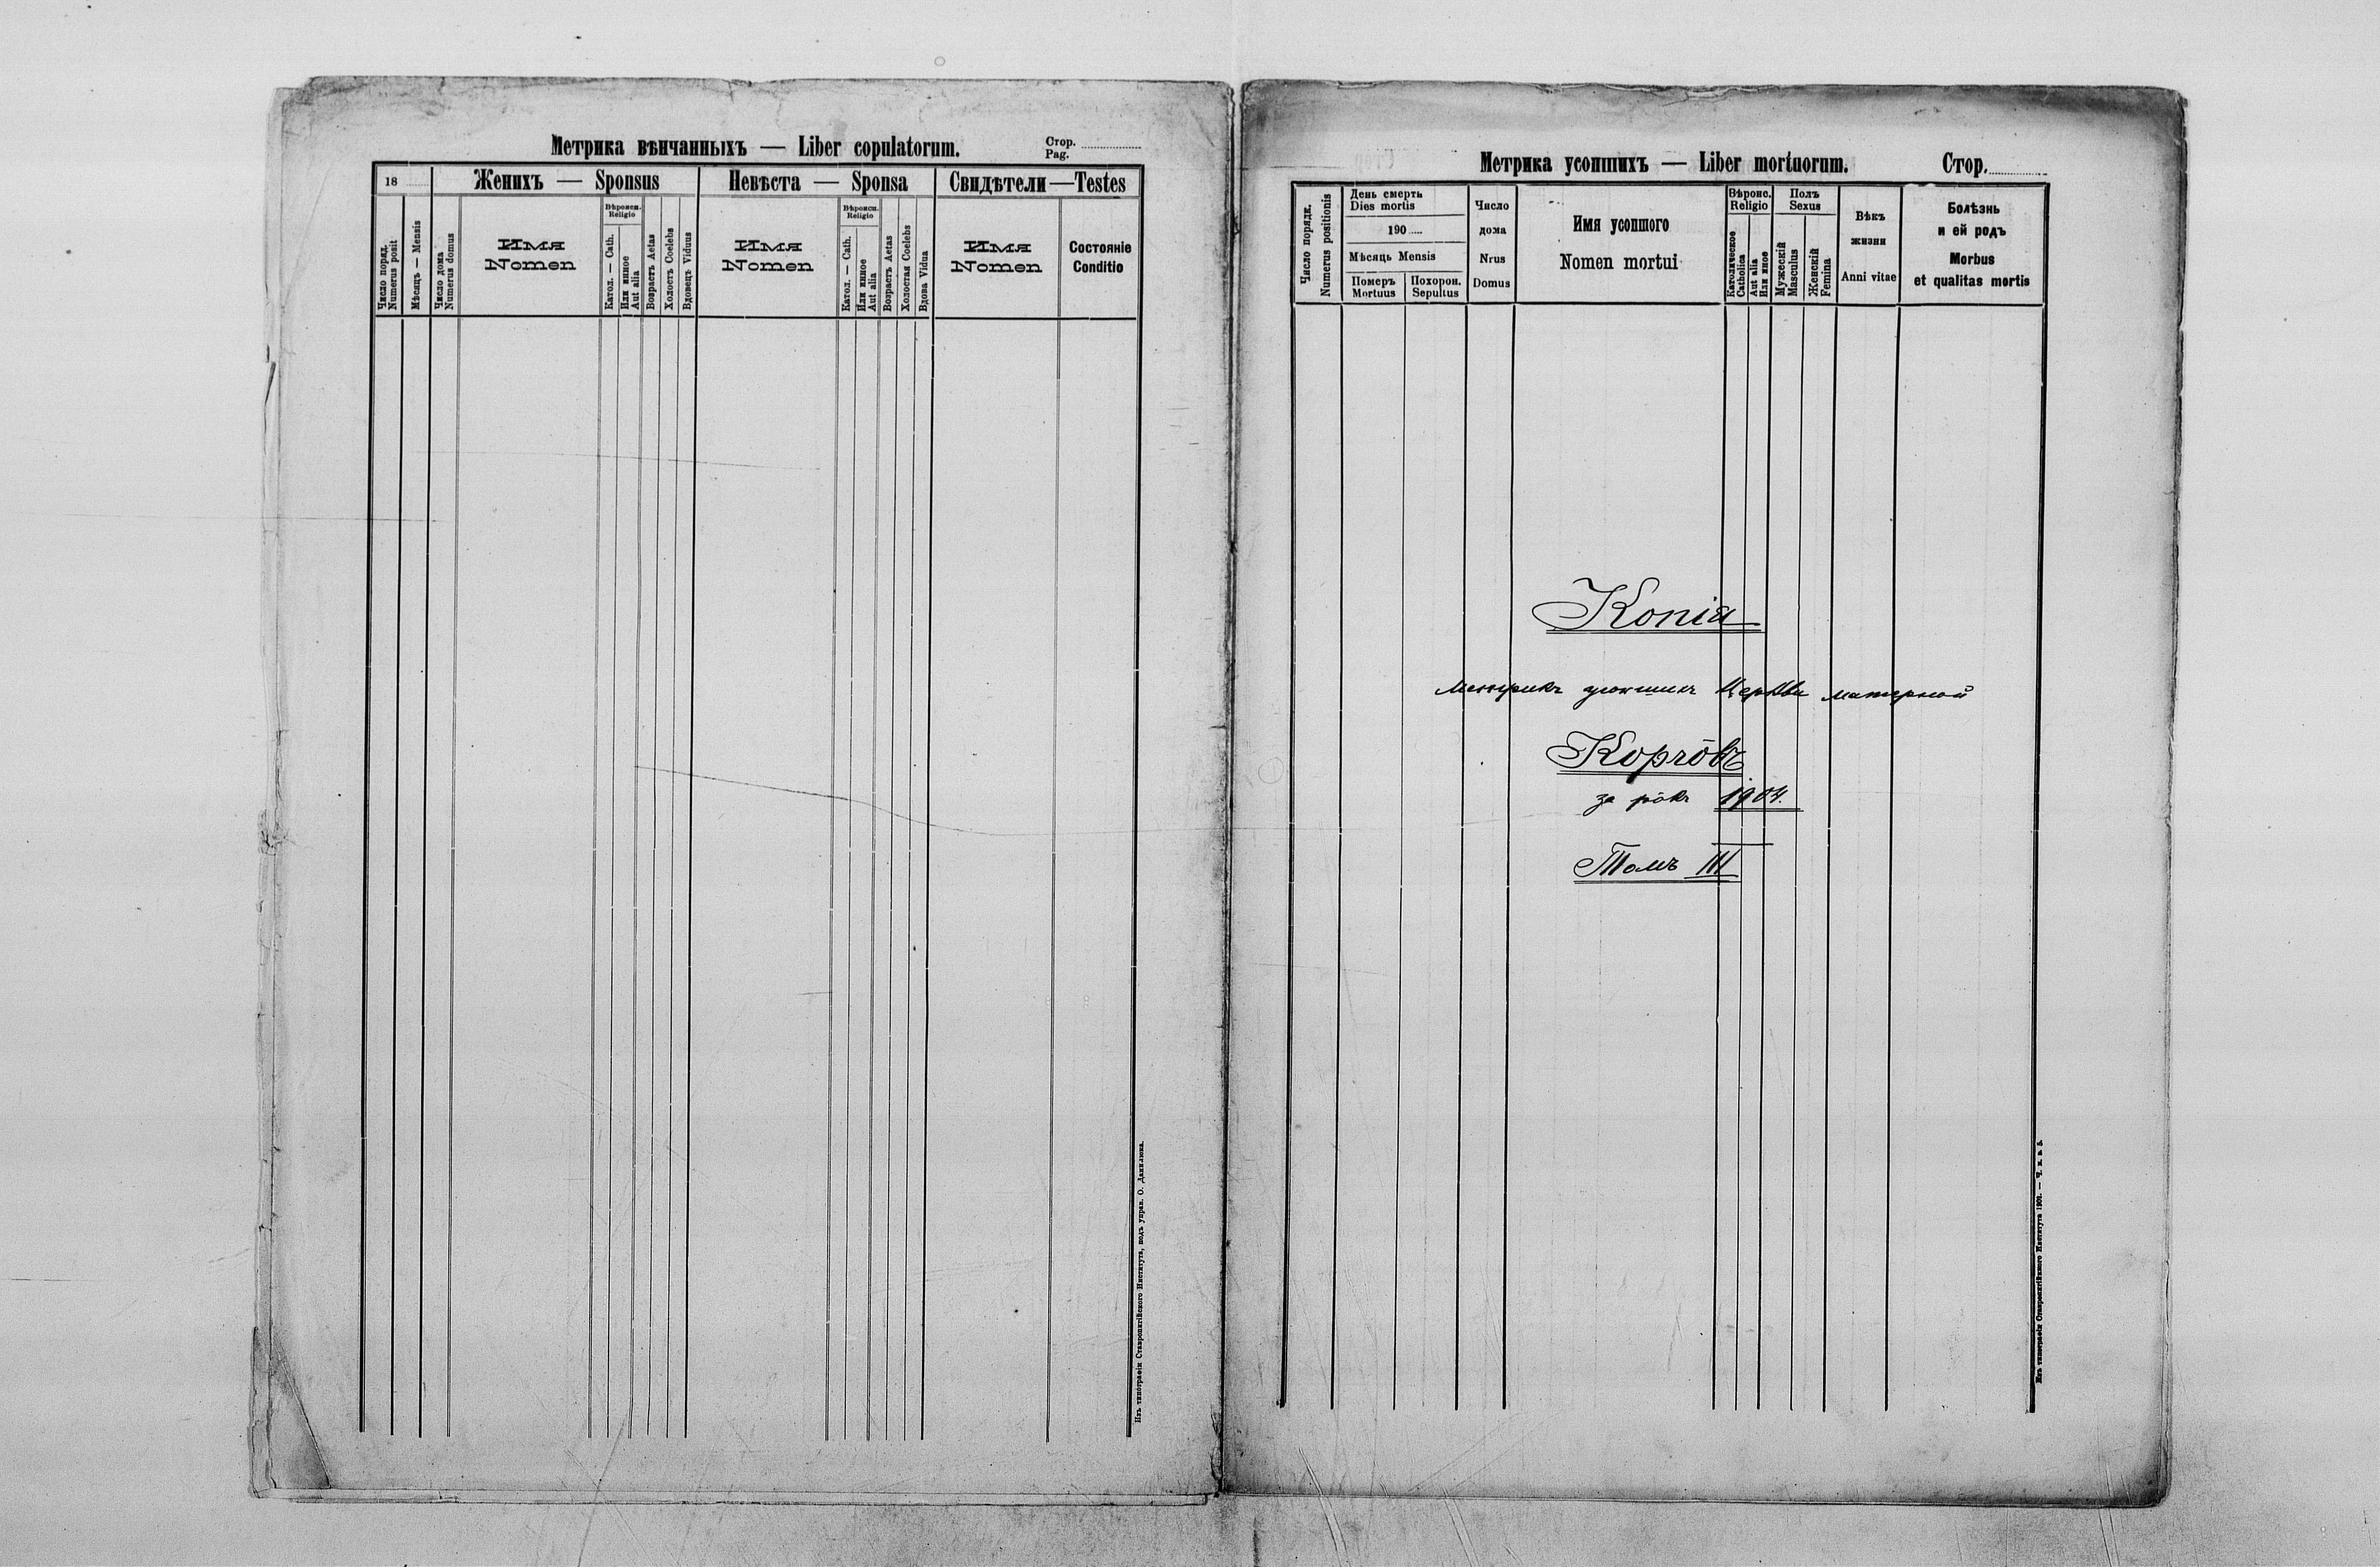 Метрика вѣнчанныхъ — Liber copulatorum.
Стор.
Pag.
18
Женихъ — Sponsus
Невѣста — Sponsa
Свидѣтели — Testes
Число поряд.
Numerus posit
Мѣсяць — Mensis
Число дома
Numerus domus
Имя
Nomen
Вѣроисп.
Religio
Катол. — Cath.
Или инное
Aut alia
Возрастъ Aetas
Холостъ Coelebs
Вдовець Viduus
Имя
Nomen
Вѣроисп.
Religio
Катол. — Cath.
Или инное
Aut alia
Возрастъ Aetas
Холостая Coelebs
Вдова Vidua
Имя
Nomen
Состояніе
Conditio
Изъ типографіи Ставропигійского Института, подъ управ. О. Данилюка.
Метрика усопшихъ — Liber mortuorum.
Стор.
Число порядк.
Numerus positionis
День смерть
Dies mortis
190
Мѣсяць Mensis
Померъ
Mortuus
Похорон.
Sepultus
Число
дома
Nrus
Domus
Имя усопшого
Nomen mortui
Вѣроис.
Religio
Католическое
Catholica
Aut alia
Или иное
Полъ
Sexus
Мужескій
Masculus
Женскій
Femina
Вѣкъ
жизни
Anni vitae
Болѣзнь
и ей родъ
Morbus
et qualitas mortis
Копія
метрикъ усопшихъ Церкви матерной
Корчôвъ
за рôкъ 1904.
Томъ III
Изъ типографіи Ставропигійского Института 1901. — Ч. з. а 5.